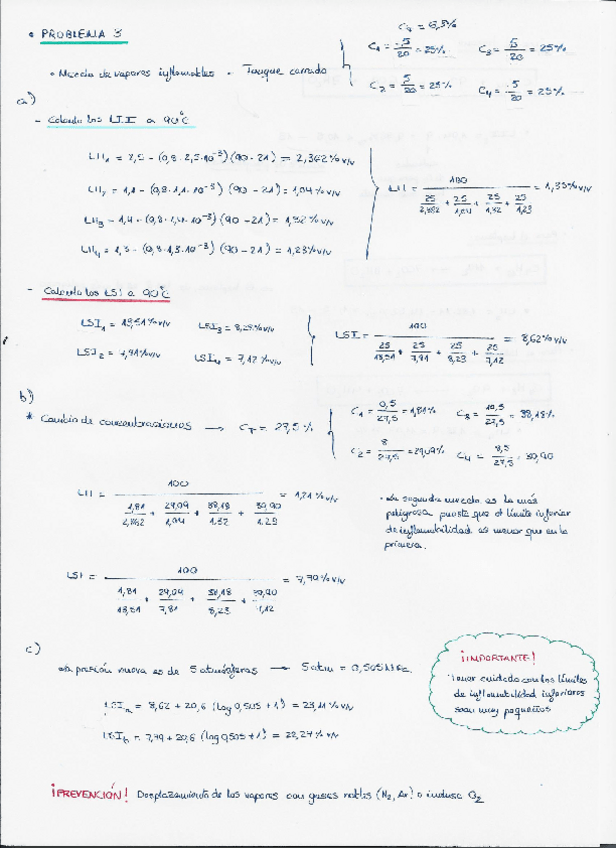 • PROBLEMA 3
• Mezcla de vapores inflamables - Tanque cerrado
C₁ = 5/20 = 25%
C₃ = 5/20 = 25%
C₂ = 5/20 = 25%
C₄ = 5/20 = 25%
a)
- Calculo los LII a 90°C
LII₁ = (0,8 · 2,5·10⁻³) (90 - 21) = 2,362 % v/v
LII₂ = 1,1 - (0,8 · 1,1·10⁻³) (90 - 21) = 1,04 % v/v
LII₃ - 1,4 - (0,8 · 1,4·10⁻³) (90 - 21) = 1,32 % v/v
LII₄ = 1,3 - (0,8 · 1,3·10⁻³) (90 - 21) = 1,23 % v/v
LII = 100 / (25/2,362 + 25/1,04 + 25/1,32 + 25/1,23) = 1,35 % v/v
- Calculo los LSI a 90°C
LSI₁ = 13,51 % v/v LSI₃ = 8,23 % v/v
LSI₂ = 7,81 % v/v LSI₄ = 7,12 % v/v
LSI = 100 / (25/13,51 + 25/7,81 + 25/8,23 + 25/7,12) = 8,62 % v/v
b)
* Cambio de concentraciones → C_T = 27,5 %
C₁ = 0,5/27,5 = 1,81 %
C₃ = 10,5/27,5 = 38,18 %
C₂ = 8/27,5 = 29,09 %
C₄ = 8,5/27,5 = 30,90
LII = 100 / (1,81/2,362 + 29,09/1,04 + 38,18/1,32 + 30,90/1,23) = 1,21 % v/v
• La segunda mezcla es la más
peligrosa puesto que el límite inferior
de inflamabilidad es menor que en la
primera.
LSI = 100 / (1,81/13,51 + 29,09/7,81 + 38,18/8,23 + 30,90/7,12) = 7,79 % v/v
c)
La presión nueva es de 5 atmósferas → 5 atm = 0,505 MPa.
LSIₐ = 8,62 + 20,6 (log 0,505 + 1) = 23,11 % v/v
LSI_b = 7,79 + 20,6 (log 0,505 + 1) = 22,27 % v/v
¡IMPORTANTE!
Tener cuidado con los límites
de inflamabilidad inferiores
son muy pequeños
¡PREVENCIÓN! Desplazamiento de los vapores con gases nobles (N₂, Ar) o incluso